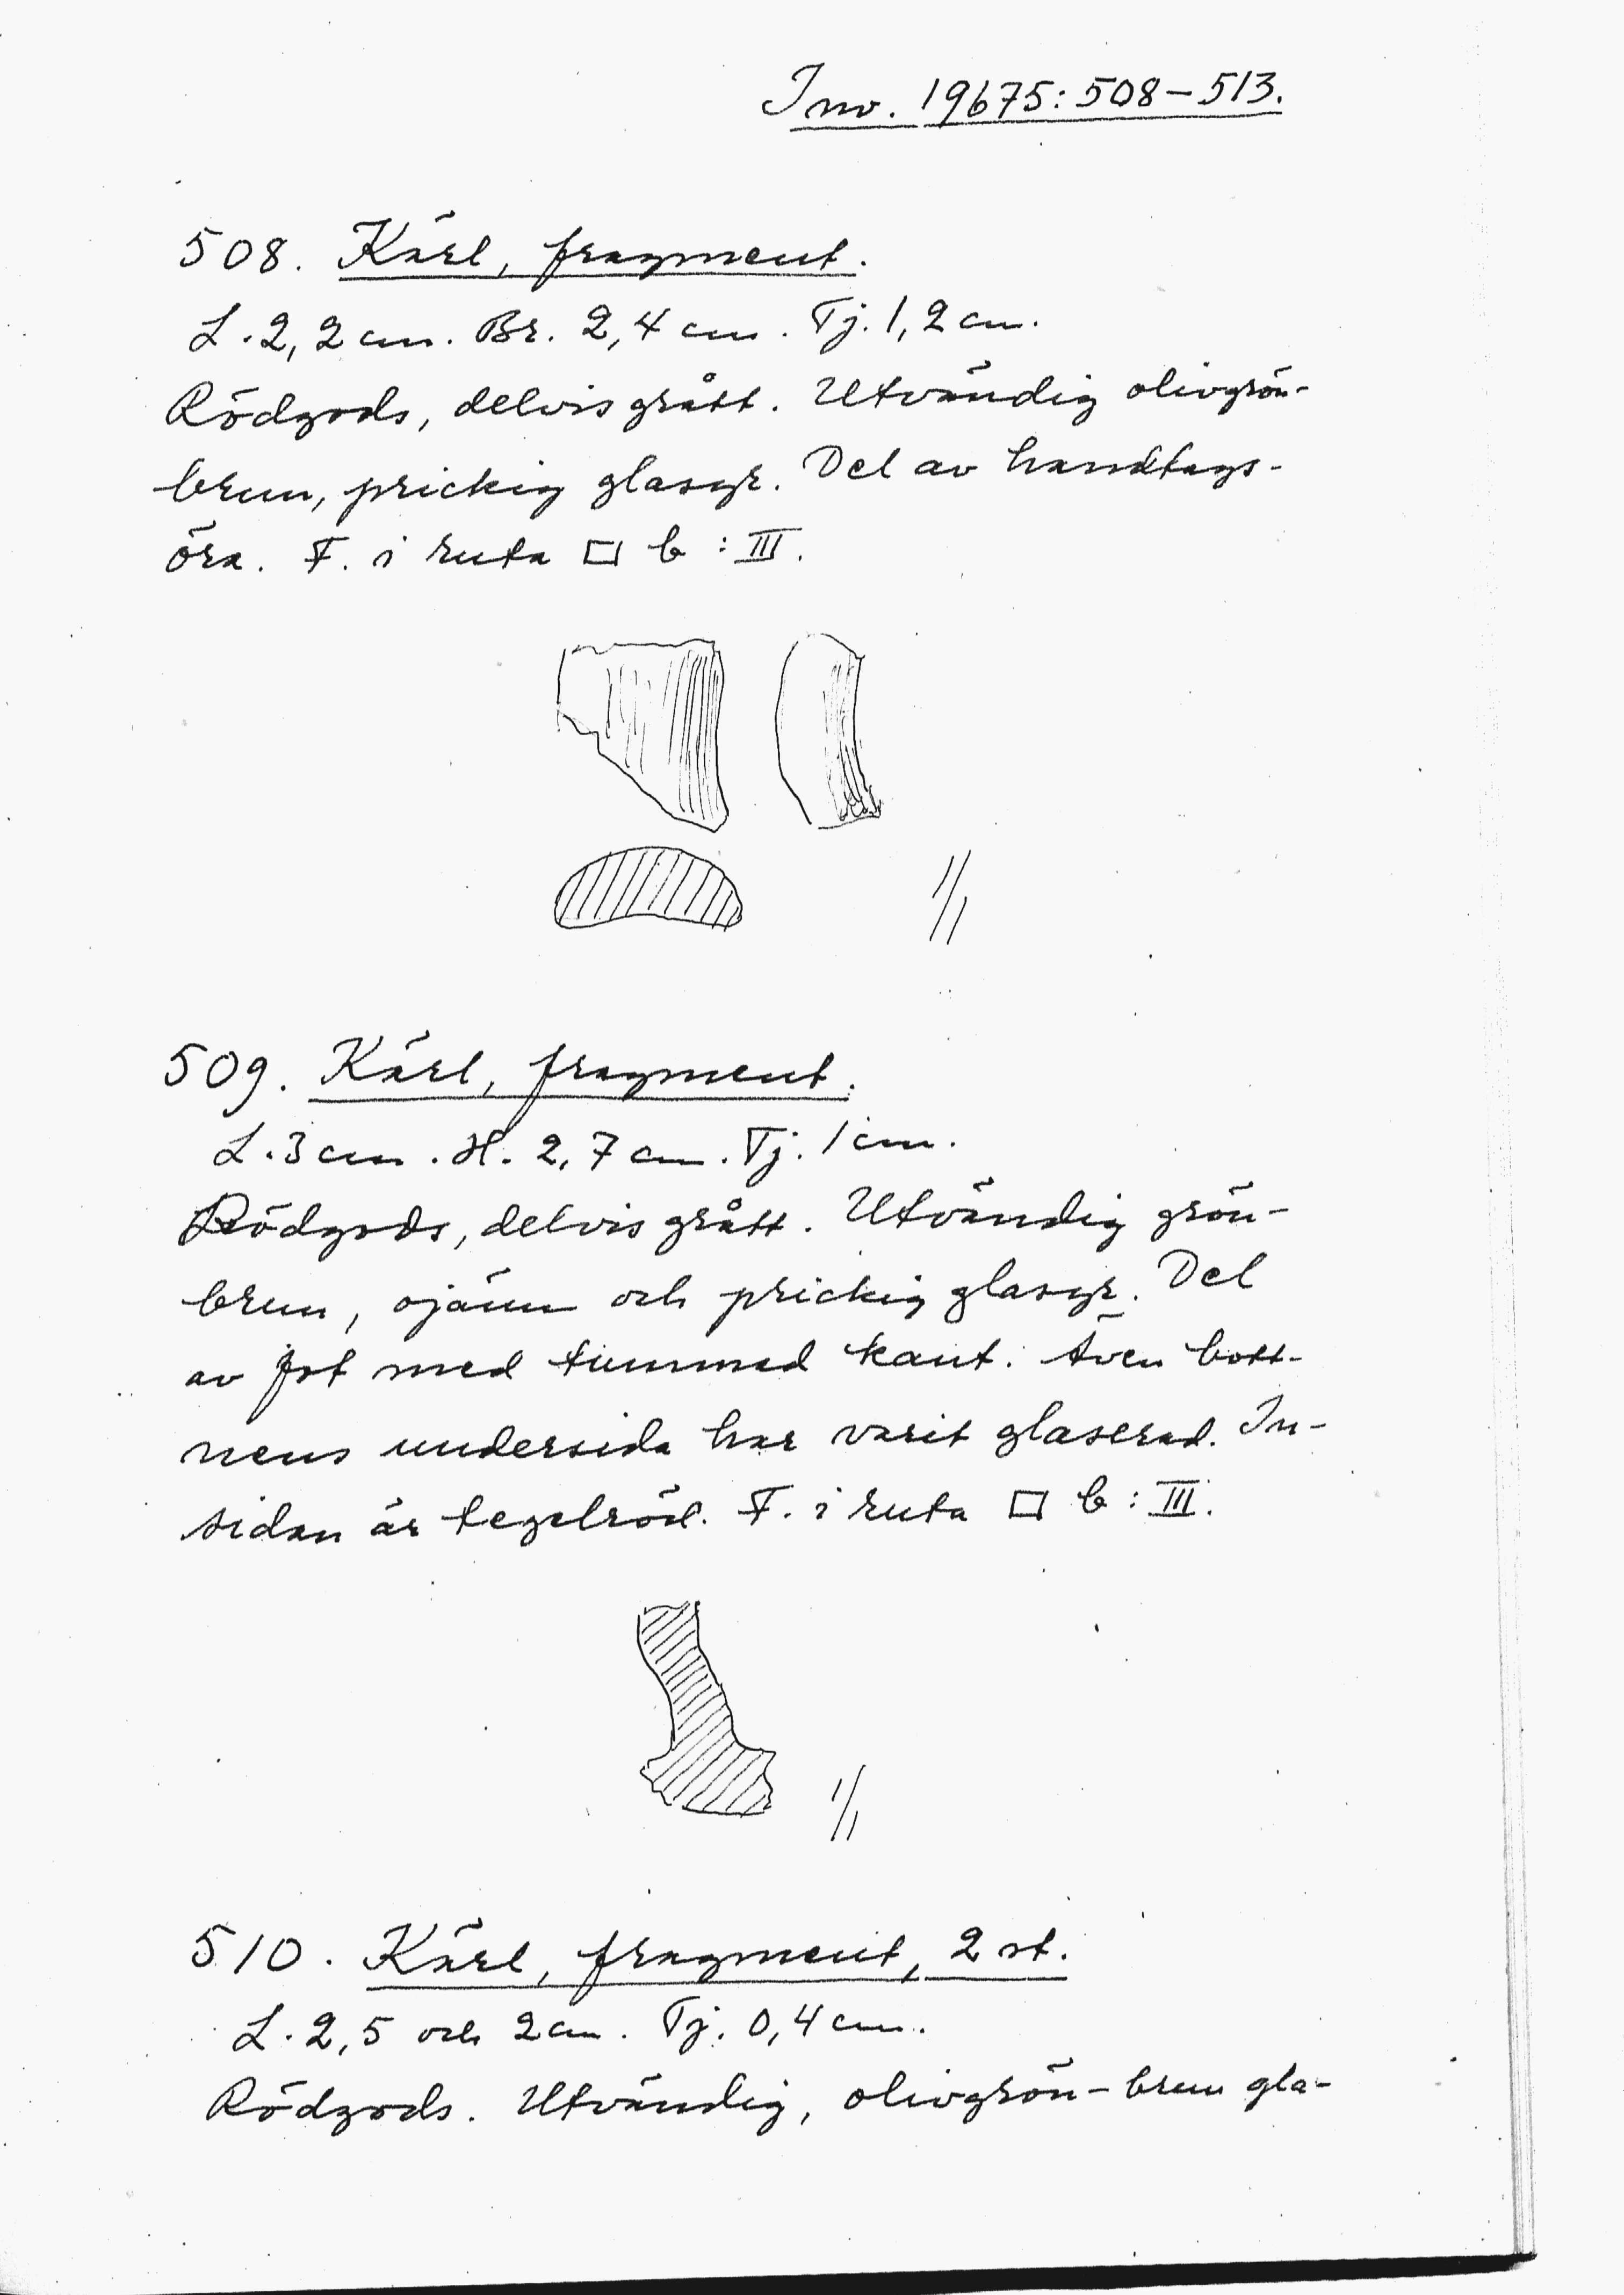 Inv. 19675:508-513.
508. Kärl, fragment.
L. 2,2 cm. Br. 2,4 cm. Tj. 1,2 cm.
Rödgods, delvis grått. Utvändig olivgrön-
brun, prickig glasyr. Del av handtags-
öra. F. i ruta □ b : III.
1/1
509. Kärl, fragment.
L. 3 cm. H. 2,7 cm. Tj. 1 cm.
Rödgods, delvis grått. Utvändig grön-
brun, ojämn och prickig glasyr. Del
av fot med tummad kant. Även bott-
nens undersida har varit glaserad. In-
sidan är tegelröd. F. i ruta □ b : III.
1/1
510. Kärl, fragment, 2 st.
L. 2,5 och 2 cm. Tj. 0,4 cm.
Rödgods. Utvändig, olivgrön-brun gla-